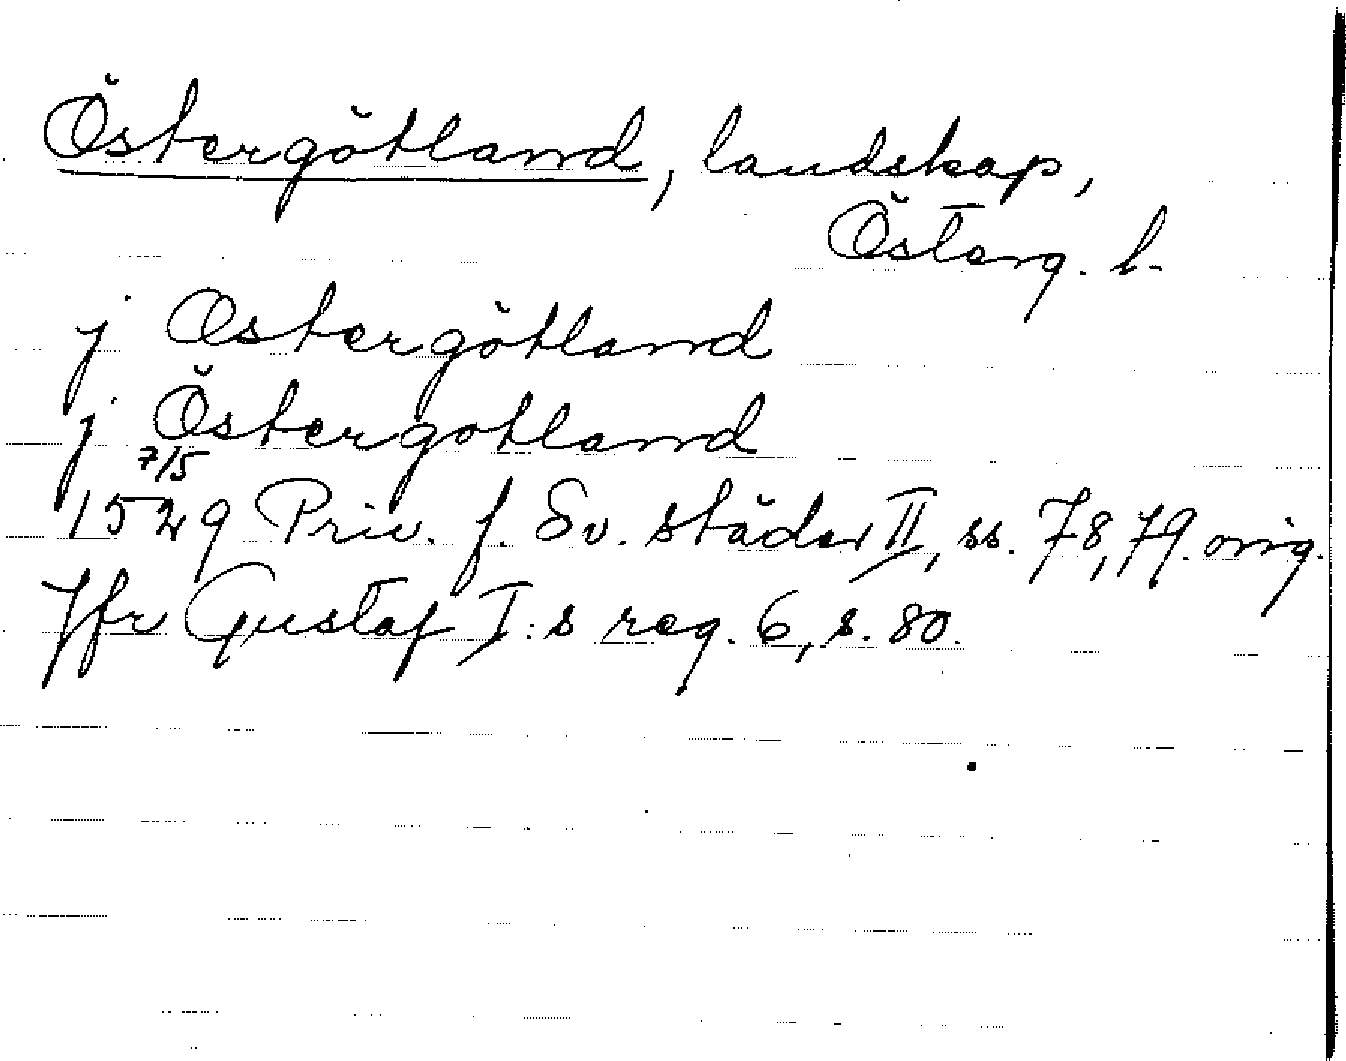 Östergötland, landskap,
Österg. l.
j Ostergötland
j Östergotland
7/5
1529 Priv. f. Sv. städer II, ss. 78, 79. orig.
Jfr Gustaf I:s reg. 6, s. 80.